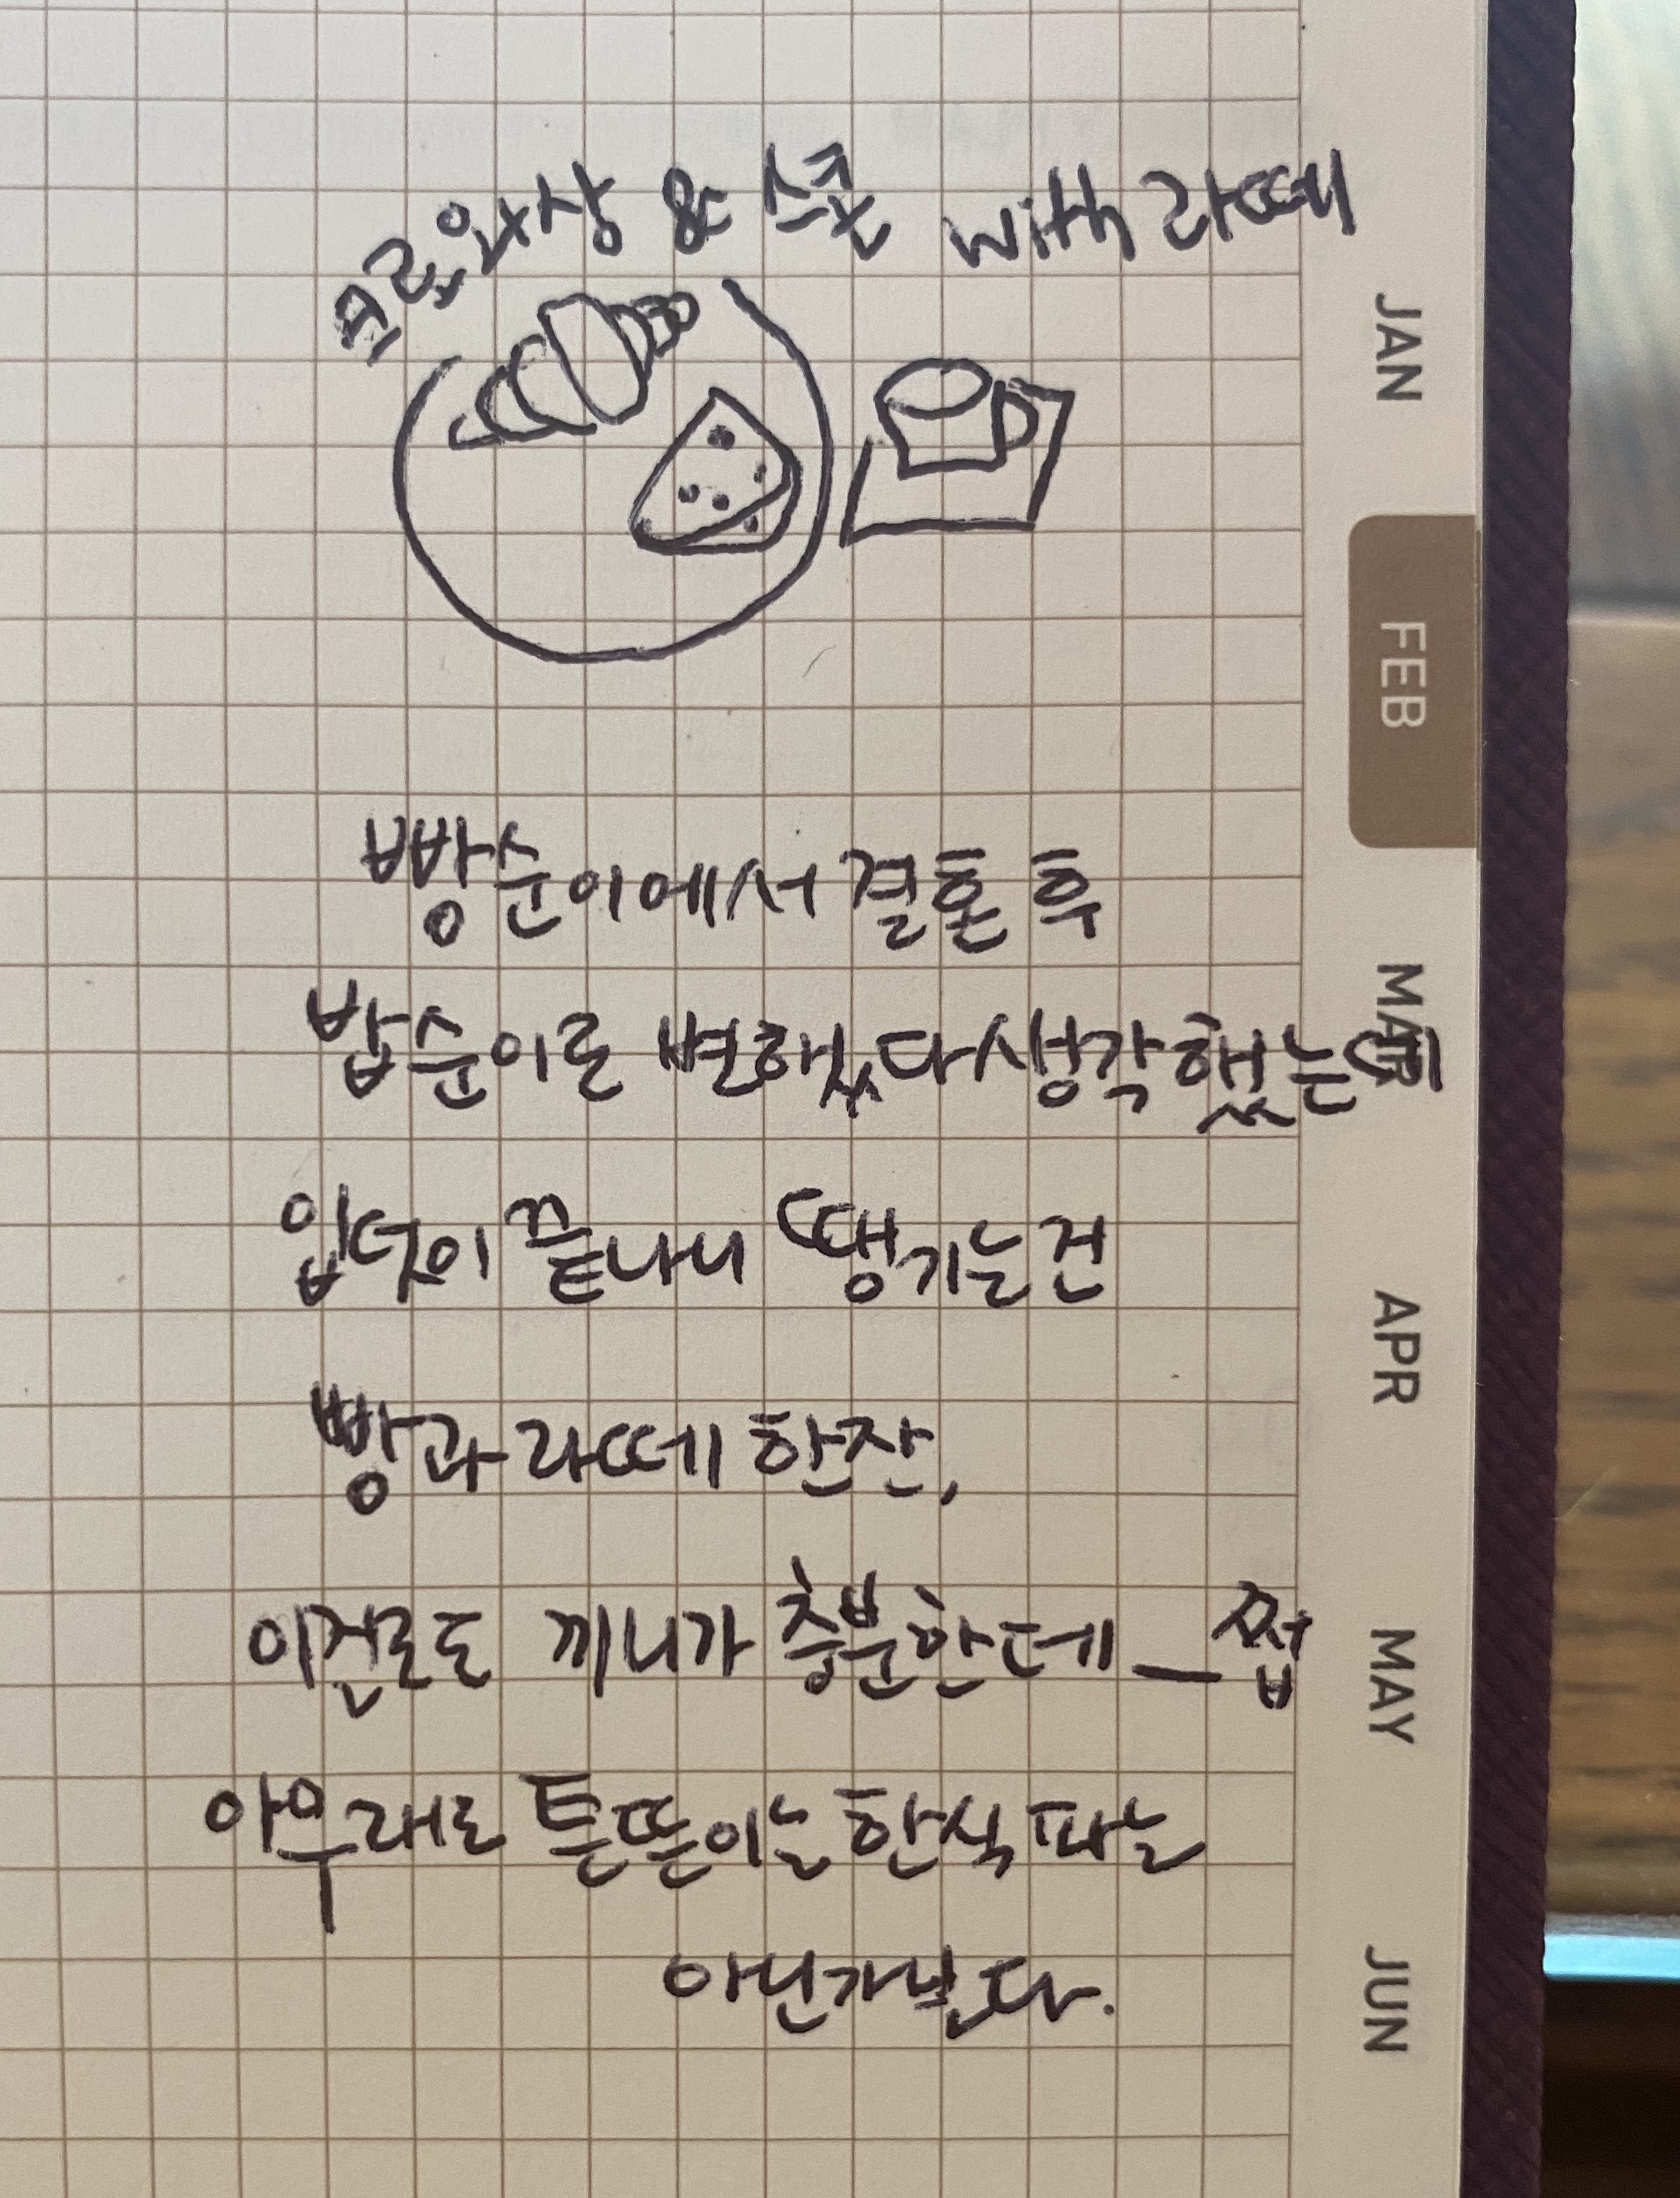 크로와상 & 스콘 with 라떼
JAN
FEB
빵순이에서 결혼 후
MAR
밥순이로 변했다 생각했는데
입덧이 끝나니 땡기는건
APR
빵과 라떼 한잔,
이걸로도 끼니가 충분한데 _ 쩝
MAY
아무래도 튼뜬이는 한식파는
아닌가보다.
JUN